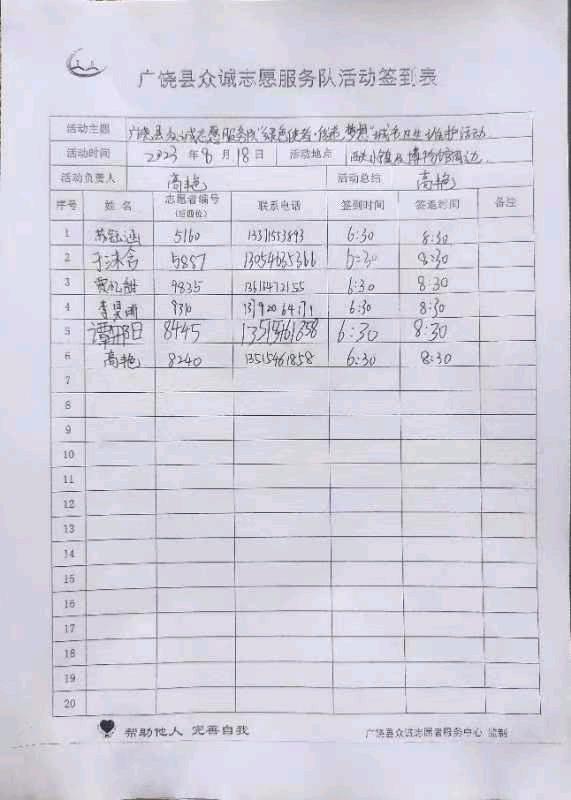 广饶县众诚志愿服务队活动签到表
活动主题 广饶县众诚志愿服务队"绿色使者·传志梦想"城市卫生维护活动
活动时间 2023年8月18日 活动地点 小镇及博物馆周边
活动负责人 高艳 活动总结 高艳
序号 姓名 志愿者编号(后四位) 联系电话 签到时间 签退时间 备注
1 5160 6:30 8:30
2 于沐含 5887 13054635366 6:30 8:30
3 9835 6:30 8:30
4 9310 6:30 8:30
5 8445 13515461858 6:30 8:30
6 高艳 8240 13515461858 6:30 8:30
7
8
9
10
11
12
13
14
15
16
17
18
19
20
帮助他人 完善自我 广饶县众诚志愿者服务中心 监制